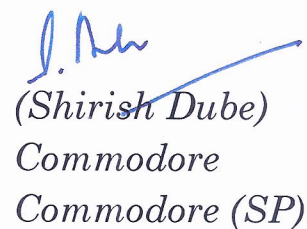 (Shirish Dube)
Commodore
Commodore (SP)